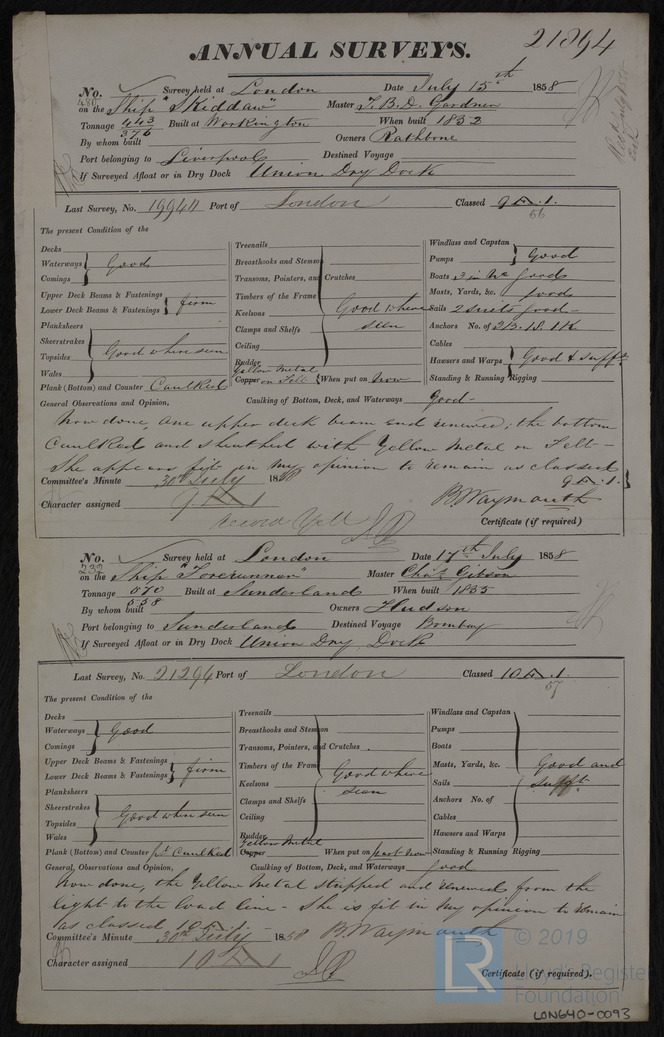 21394
ANNUAL SURVEYS.
No. 480 Survey held at London Date July 15th 1858
on the Ship "Skiddaw" Master J. B. D. Gardner
Tonnage 443 376 Built at Workington When built 1852
By whom built Owners Rathbone
Port belonging to Liverpool Destined Voyage
If Surveyed Afloat or in Dry Dock Union Dry Dock
Last Survey, No. 19940 Port of London Classed 9 A. 1.
56
The present Condition of the
Decks
Waterways Good
Comings
Upper Deck Beams & Fastenings
Lower Deck Beams & Fastenings firm
Planksheers
Sheerstrakes
Topsides Good when seen
Wales
Plank (Bottom) and Counter Caulked
Treenails
Breasthooks and Stemson
Transoms, Pointers, and Crutches
Timbers of the Frame
Keelsons Good where
Clamps and Shelfs seen
Ceiling
Rudder
Yellow Metal
Copper on Felt When put on Now
Windlass and Capstan
Pumps Good
Boats 3 in No. good
Masts, Yards, &c. good
Sails 2 suits good
Anchors No. of
Cables
Hawsers and Warps Good & sufft
Standing & Running Rigging
General Observations and Opinion, Caulking of Bottom, Deck, and Waterways good
Now done, one upper deck beam end renewed; the bottom
Caulked and sheathed with Yellow Metal on Felt
She appears fit in my opinion to remain as classed
9 A. 1.
Committee's Minute 30th July 1858
Character assigned 9 A 1
B. Waymouth
Certificate (if required)
No. 232 Survey held at London Date 17th July 1858
on the Ship "Forerunner" Master Chas. Gibson
Tonnage 570 558 Built at Sunderland When built 1855
By whom built Owners Hudson
Port belonging to Sunderland Destined Voyage Bombay
If Surveyed Afloat or in Dry Dock Union Dry Dock
Last Survey, No. 21296 Port of London Classed 10 A. 1.
57
The present Condition of the
Decks
Waterways Good
Comings
Upper Deck Beams & Fastenings
Lower Deck Beams & Fastenings firm
Planksheers
Sheerstrakes
Topsides Good when seen
Wales
Plank (Bottom) and Counter pt Caulked
Treenails
Breasthooks and Stemson
Transoms, Pointers, and Crutches
Timbers of the Frame
Keelsons Good where
Clamps and Shelfs seen
Ceiling
Rudder
Yellow Metal
Copper When put on part now
Windlass and Capstan
Pumps
Boats
Masts, Yards, &c. Good and
Sails sufft
Anchors No. of
Cables
Hawsers and Warps
Standing & Running Rigging
General, Observations and Opinion, Caulking of Bottom, Deck, and Waterways good
Now done, the Yellow Metal stripped and renewed from the
light to the load line - She is fit in my opinion to remain
as classed 10 A. 1.
Committee's Minute 30th July 1858 B. Waymouth
Character assigned 10 A 1
Certificate (if required).
LR
© 2019
Lloyd's Register
Foundation
LON640-0093